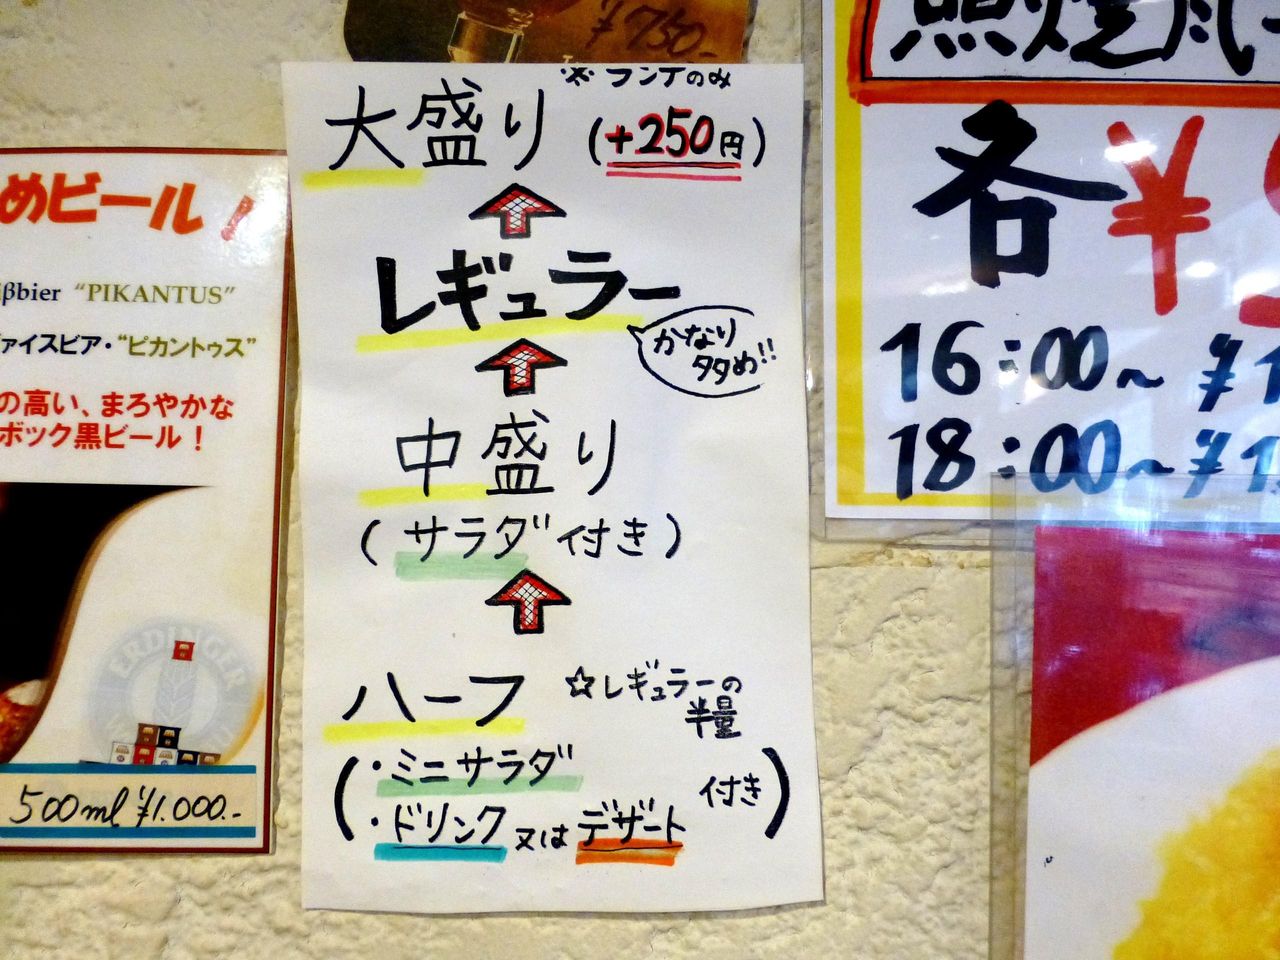 ¥750-
めビール!
ißbier “PIKANTUS”
ァイスビア・“ピカントゥス”
の高い、まろやかな
ボック黒ビール!
ERDINGER
500ml ¥1.000.-
※ランチのみ
大盛り (+250円)
レギュラー
かなり
多め!!
中盛り
(サラダ付き)
ハーフ ☆レギュラーの
半量
・ミニサラダ
・ドリンク又はデザート 付き
照焼風
各¥
16:00~ ¥1
18:00~ ¥1